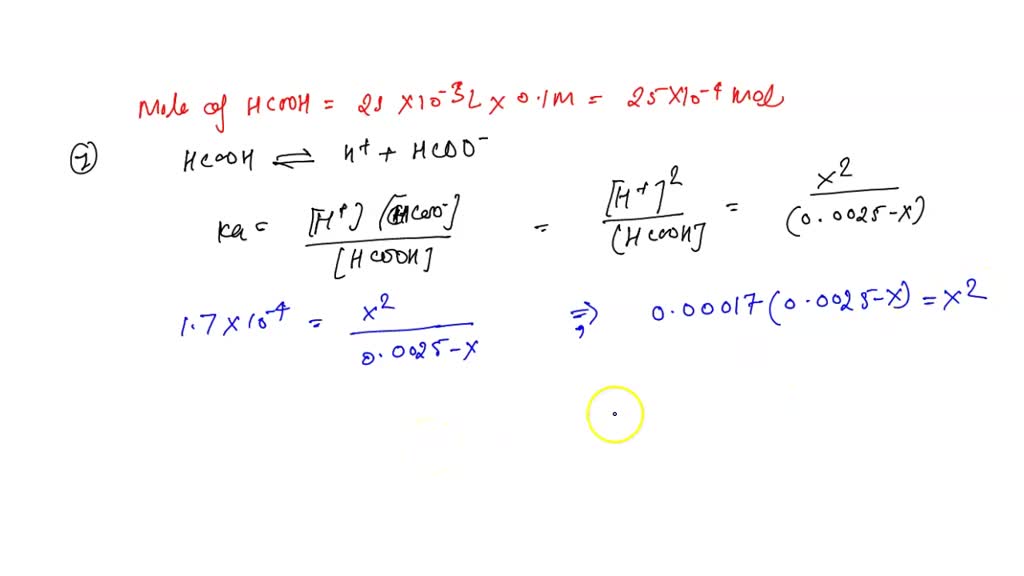 Mole of HCOOH = 25 × 10⁻³ L × 0.1 M = 25 × 10⁻⁴ mol
① HCOOH ⇌ H⁺ + HCOO⁻
Ka = [H⁺] [HCOO⁻] / [HCOOH] = [H⁺]² / [HCOOH] = x² / (0.0025 - x)
1.7 × 10⁻⁴ = x² / 0.0025 - x ⇒, 0.00017 (0.0025 - x) = x²